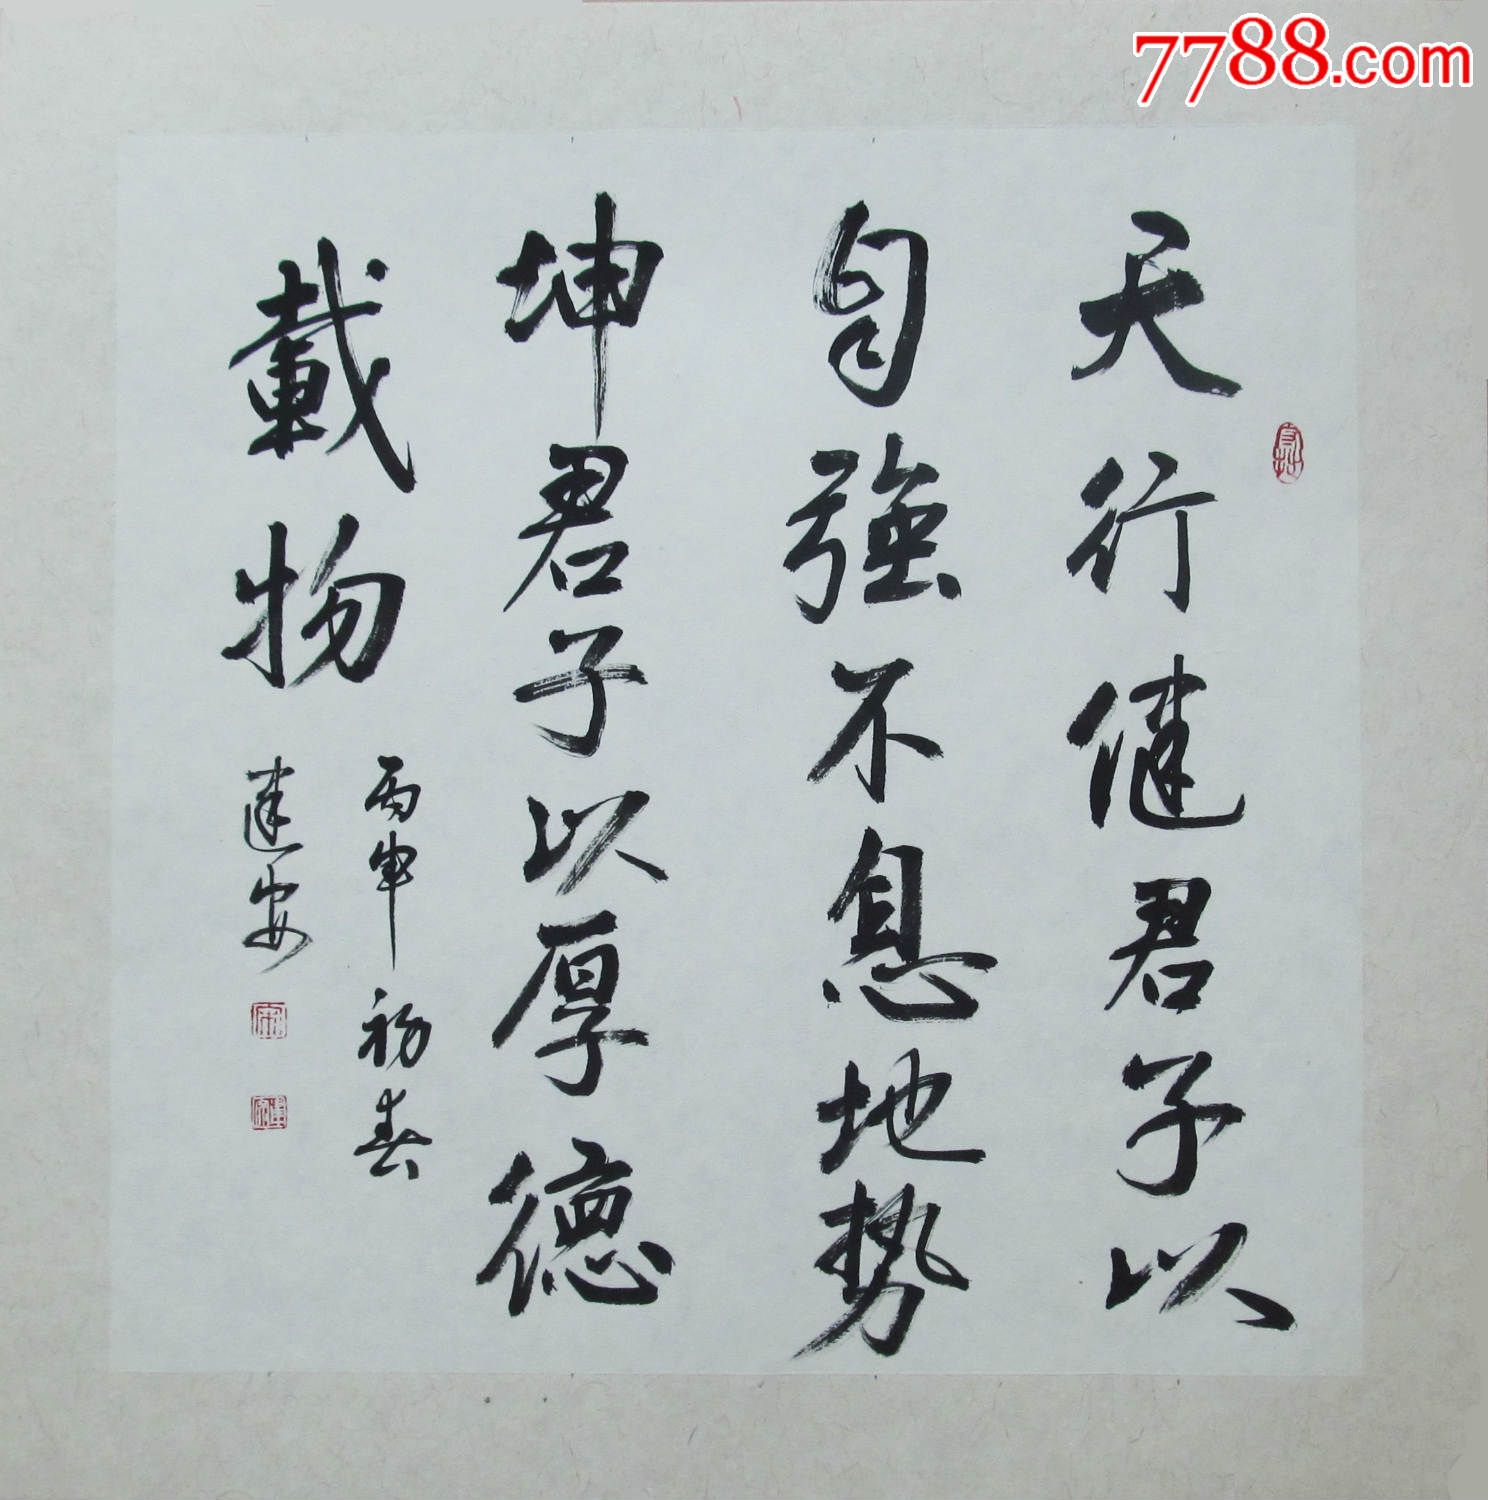 7788.com
天行健君子以
自強不息地势
坤君子以厚德
載物
丙申初春
建安